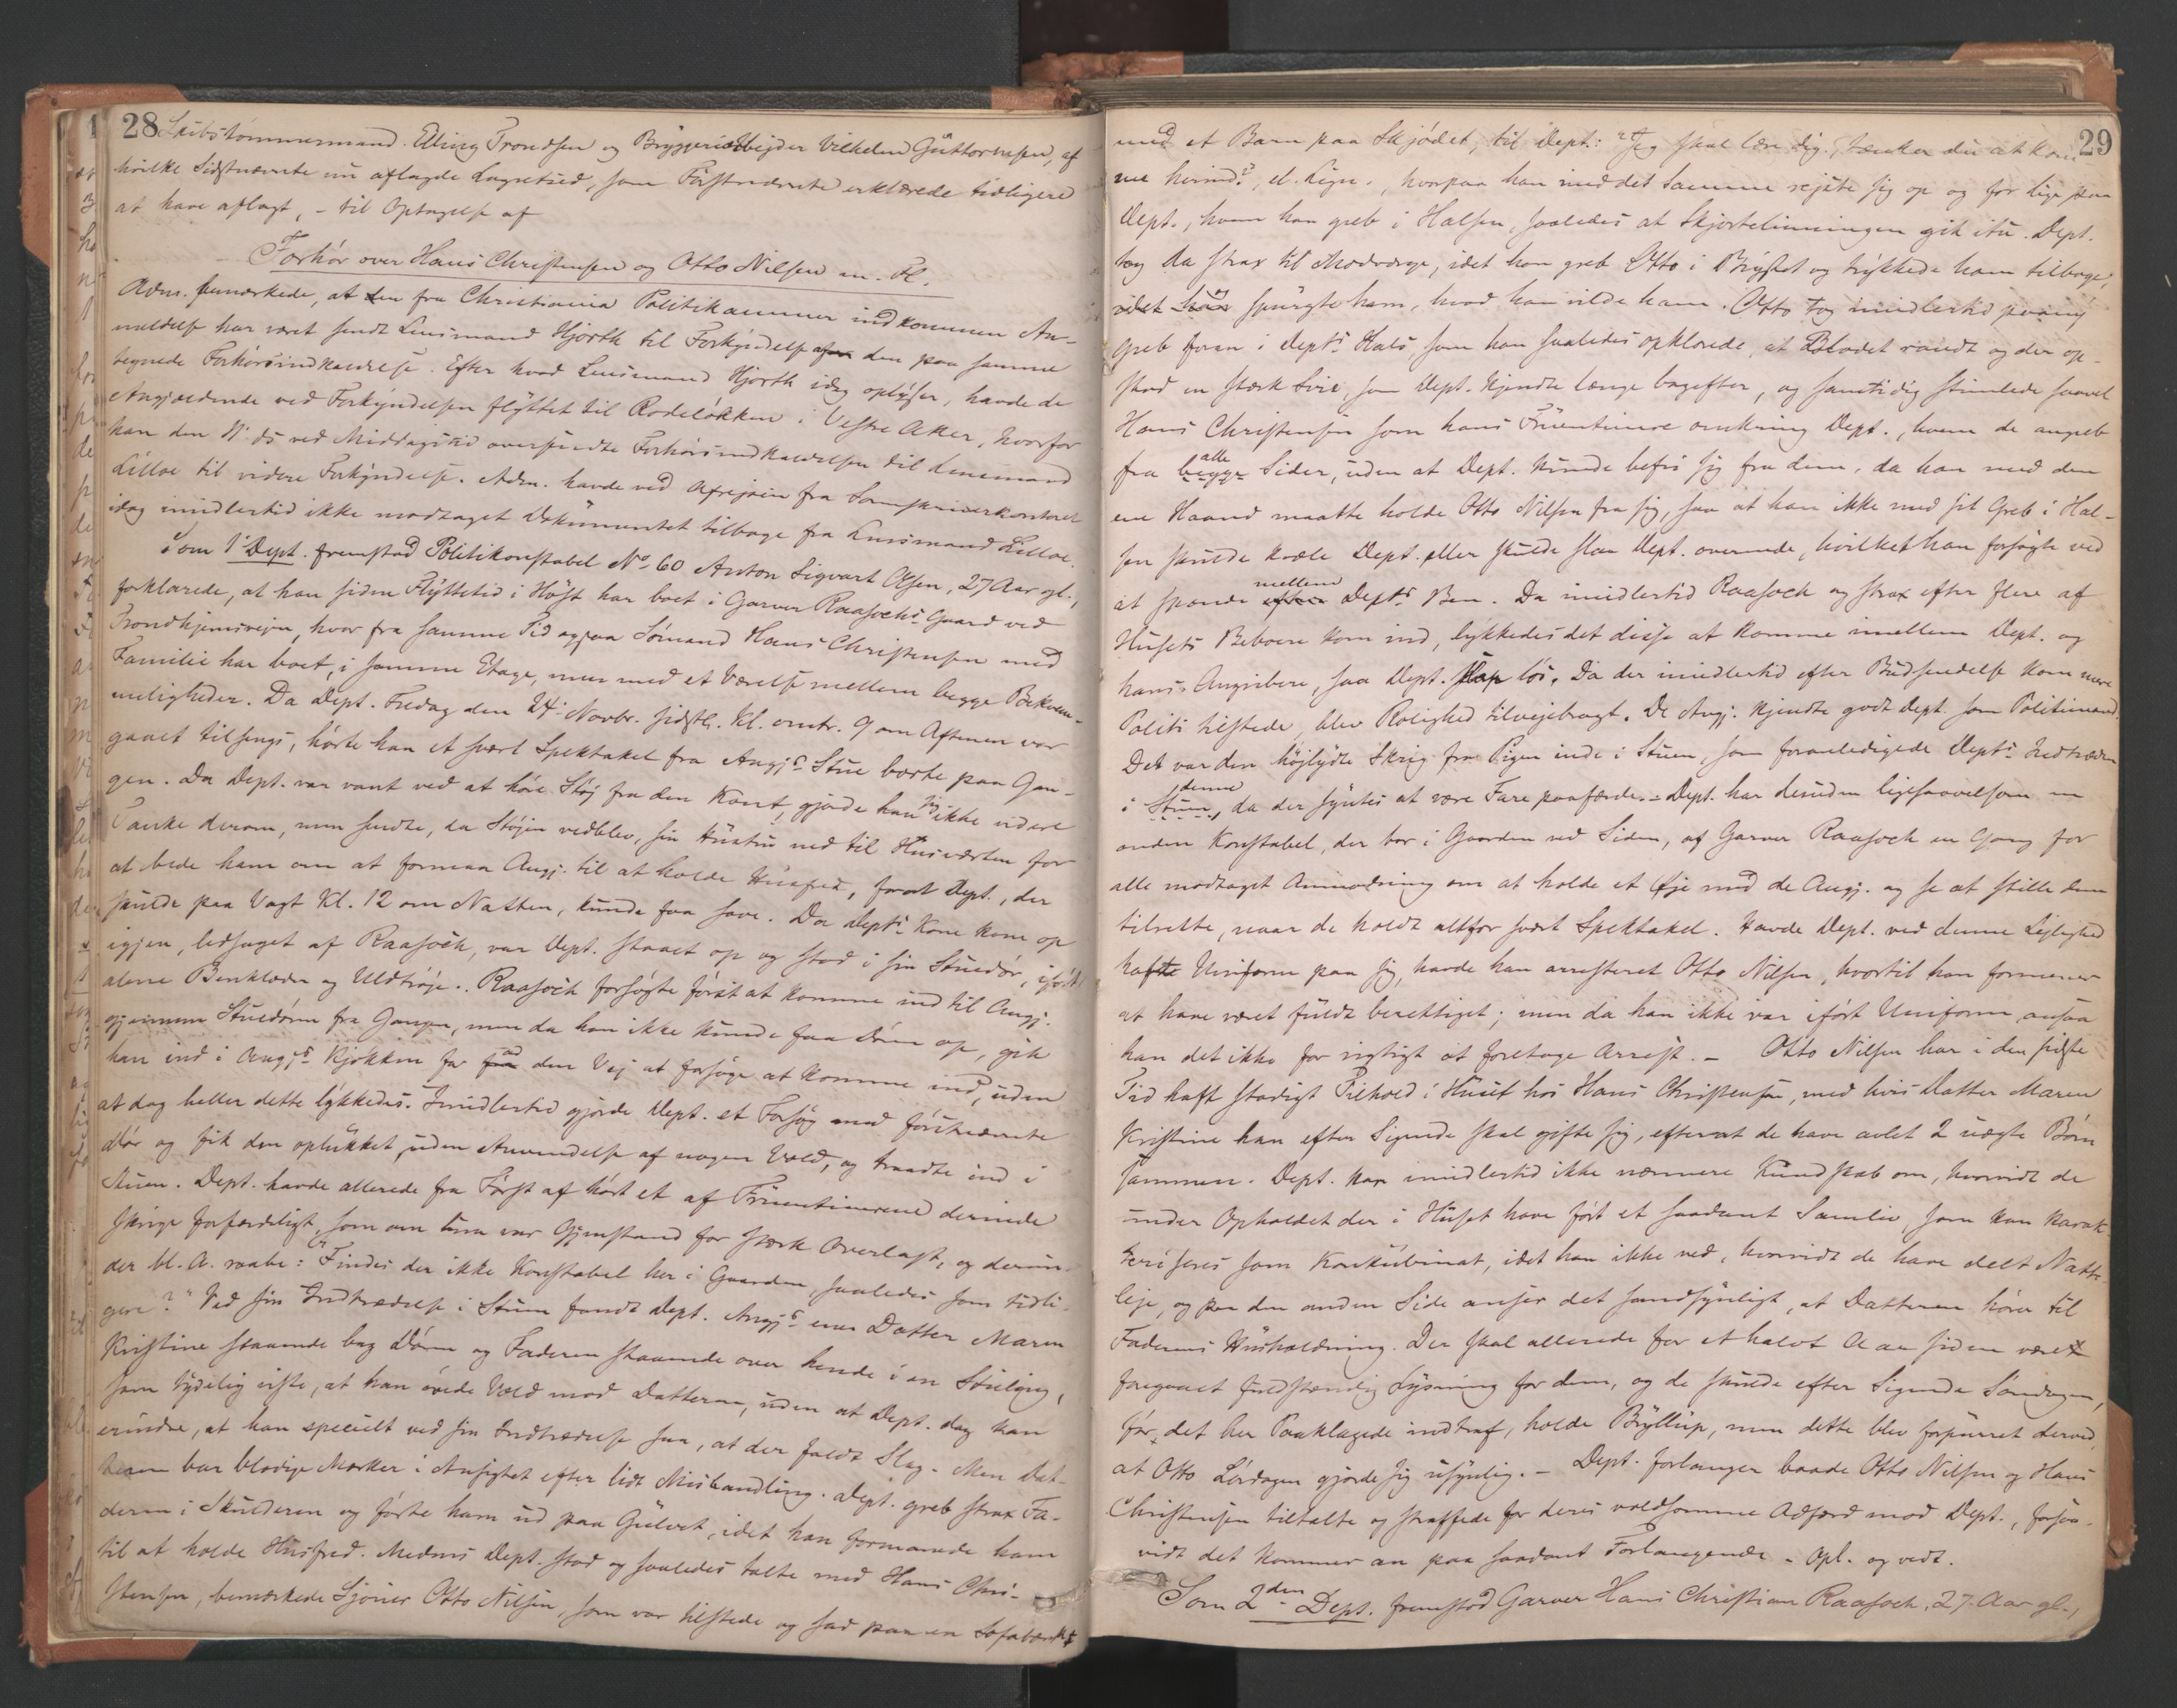 28 Skibstømmermand Elling Trondsen og Bryggeriarbeider Vilhelm Guttormsen, af
hvilke Sidstnævnte nu aflagde Lagretsed, som Førstnævnte erklærede tidligere
at have aflagt, - til Optagelse af
Forhør over Hans Christensen og Otto Nilsen m. Fl.
Adm. bemærkede, at den fra Christiania Politikammer indkommen An-
meldelse har været sendt Lensmand Hjorth til Forkyndelse af den paa samme
tegnede Forhørsindkaldelse. Efter hvad Lensmand Hjorth idag oplyser, havde de
Angjældende ved Forkyndelsen flyttet til Rodeløkken i Vestre Aker, hvorfor
han den 11' ds ved Middagstid oversendte Forhørsindkaldelsen til Lensmand
Lilloe til videre Forkyndelse. Adm. havde ved Afrejsen fra Sorenskriverkontoret
idag imidlertid ikke modtaget Dokumentet tilbage fra Lensmand Lilloe.
Som 1' Dept. fremstod Politikonstabel No 60 Anton Sigvart Olsen, 27 Aar gl.,
forklarede, at han siden Flyttetid i Høst har boet i Garver Raasochs Gaard ved
Trondhjemsvejen, hvor fra samme Tid ogsaa Sømand Hans Christensen med
Familie har boet, i samme Etage, men med et Værelse mellem begge Bekvem-
meligheder. Da Dept. Fredag den 24' Novbr. sidstl. Kl. omtr. 9 om Aftenen var
gaaet tilsengs, hørte han et svært Spektakel fra Angj.s Stue borte paa Gan-
gen. Da Dept. var vant ved at høre Støj fra den Kant, gjorde han sig ikke videre
Tanke derom, men sendte, da Støjen vedblev, sin Hustru ned til Husværten for
at bede ham om at formaa Angj. til at holde Husfred, forat Dept., der
skulde paa Vagt Kl. 12 om Natten, kunde faa sove. Da Depts Kone kom op
igjen, ledsaget af Raasoch, var Dept. staaet op og stod i sin Stuedør, iført
alene Benklæder og Uldtrøje. Raasoch forsøgte først at komme ind til Angj.
gjennem Stuedøren fra Gangen, men da han ikke kunde faa Døren op, gik
han ind i Angjs Kjøkken for ad den Vej at forsøge at komme ind, uden
at dog heller dette lykkedes. Imidlertid gjorde Dept. et Forsøg med førstnævnte
Dør og fik den oplukket, uden Anvendelse af nogen Vold, og traadte ind i
Stuen. Dept. havde allerede fra Først af hørt et af Fruentimrene derinde
skrige forfærdeligt, som om hun var Gjenstand for stærk Overlast, og derun-
der bl. A. raabe: "Findes der ikke Konstabel her i Gaarden, saaledes som tidli-
gere?" Ved sin Indtrædelse i Stuen fandt Dept. Angjs ene Datter Maren
Kristine staaende bag Døren og Faderen staaende over hende i en Stilling,
som tydelig viste, at han øvede Vold mod Datteren, uden at Dept. dog kan
erindre, at han specielt ved sin Indtrædelse saa, at der faldt Slag. Men Dat-
teren bar blodige Mærker i Ansigtet efter lidt Mishandling. Dept. greb strax Fa-
deren i Skulderen og førte ham ud paa Gulvet, idet han formanede ham
til at holde Husfred. Medens Dept. stod og saaledes talte med Hans Chri-
stensen, bemærkede Sjouer Otto Nilsen, som var tilstede og sad paa en Sofabænk
29
med et Barn paa Skjødet, til Dept.: "Jeg skal lære dig, tænker du at kom-
me herind?", el. lign., hvorpaa han med det Samme rejste sig op og for lige paa
Dept., hvem han greb i Halsen, saaledes at Skjortelinningen gik itu. Dept.
tog da strax til Modværge, idet han greb Otto i Brystet og trykkede ham tilbage,
og spurgte ham, hvad han vilde ham. Otto tog imidlertid paany
Greb foran i Depts Hals, som han saaledes opklorede, at Blodet randt og der op-
stod en stærk Svie, som Dept. kjendte længe bagefter, og samtidig stimlede saavel
Hans Christensen som hans Fruentimre omkring Dept., hvem de angreb
fra alle begge Sider, uden at Dept. kunde befri sig fra dem, da han med den
ene Haand maatte holde Otto Nilsen fra sig, saa at han ikke med sit Greb i Hal-
sen skulde kvæle Dept. eller skulde slaa Dept. overende, hvilket han forsøgte ved
at spænde mellem efter Depts Ben. Da imidlertid Raasoch og strax efter flere af
Husets Beboere kom ind, lykkedes det disse at komme imellem Dept. og
hans Angribere, saa Dept. slap løs. Da der imidlertid efter Budsendelse kom mere
Politi tilstede, blev Rolighed tilvejebragt. De Angj. kjendte godt Dept. som Politimand.
Det var den højlydte Skrig fra Pigen inde i Stuen, som foranledigede Depts Indtræden
i denne Stuen, da der syntes at være Fare paafærde. - Dept. har desuden ligesaavelsom en
anden Konstabel, der bor i Gaarden ved Siden, af Garver Raasoch en Gang for
alle modtaget Anmodning om at holde et Øje med de Angj. og se at stille dem
tilrette, naar de holdt altfor svært Spektakel. Havde Dept. ved denne Lejlighed
haft Uniform paa sig, havde han arresteret Otto Nilsen, hvortil han formener
at have været fuldt berettiget; men da han ikke var iført Uniform ansaa
han det ikke for rigtigt at foretage Arrest. - Otto Nilsen har i den sidste
Tid haft stadigt Tilhold i Huset hos Hans Christensen, med hvis Datter Maren
Kristine han efter Sigende skal gifte sig, efterat de have avlet 2 uægte Børn
sammen. Dept. har imidlertid ikke nærmere Kundskab om, hvorvidt de
under Opholdet der i Huset have ført et saadant Samliv, som kan karak-
teriseres som Konkubinat, idet han ikke ved, hvorvidt de have delt Natte-
leje, og paa den anden Side anser det sandsynligt, at Datteren hører til
Faderens Husholdning. Der skal allerede for et halvt Aar siden være
foregaaet fuldstændig Lysning for dem, og de skulde efter Sigende Søndagen,
før det her Paaklagede indtraf, holde Bryllup, men dette blev forpurret derved,
at Otto Lørdagen gjorde sig usynlig. - Dept. forlanger baade Otto Nilsen og Hans
Christensen tiltalte og straffede for deres voldsomme Adfærd mod Dept., forsaa-
vidt det kommer an paa saadant Forlangende. - Opl. og vedt.
Som 2den Dept. fremstod Garver Hans Christian Raasoch, 27 Aar gl.,